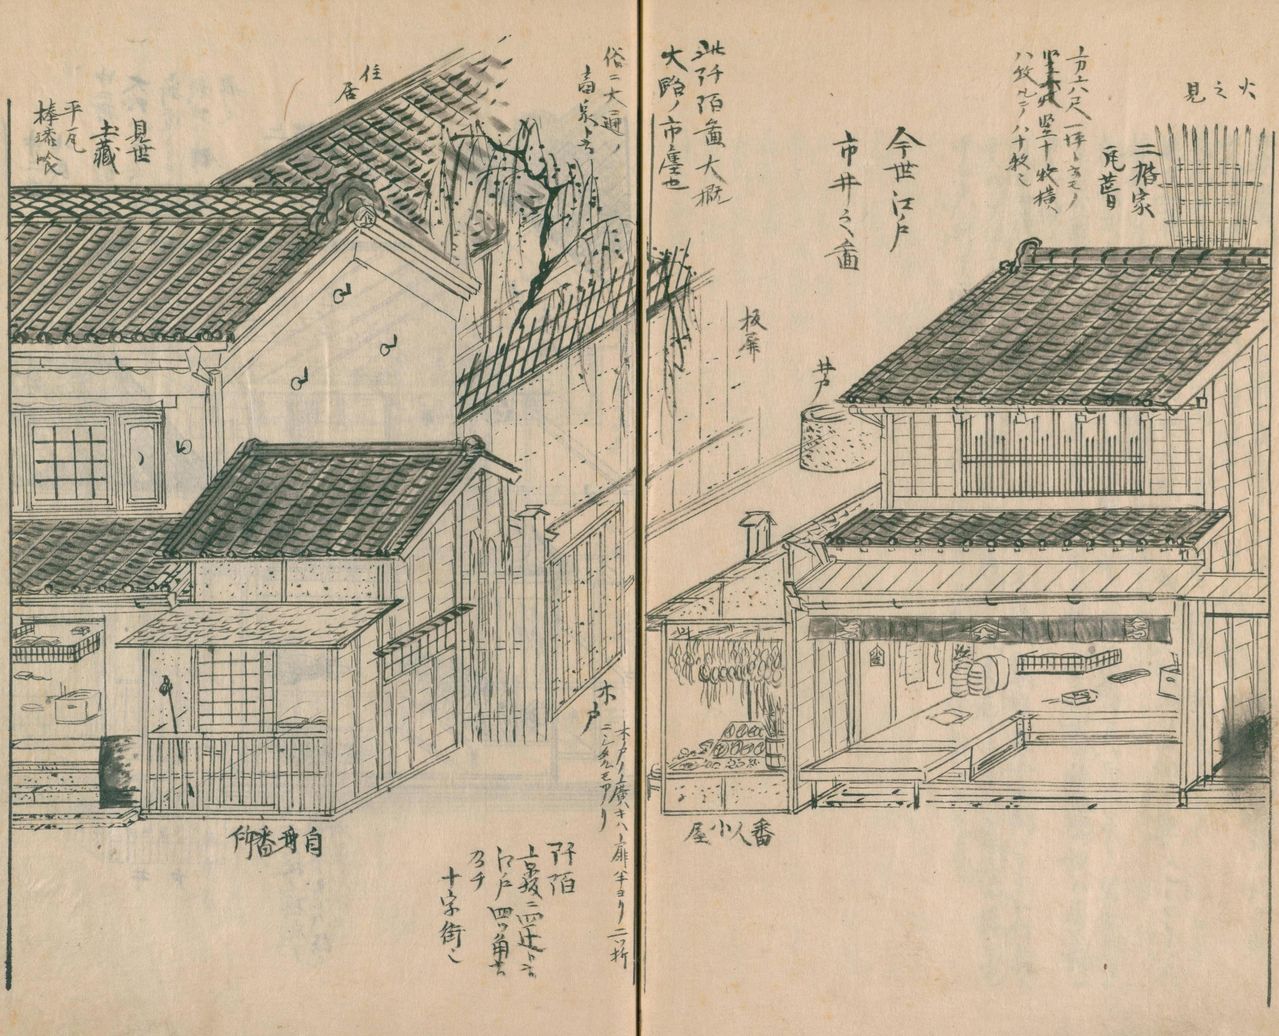 火之見
二楷家
瓦葺
方六尺一坪ト云モノ
竪十枚横
八枚凡テ八十枚也
今世江戸
市井之啚
此阡陌啚大概
大路ノ市廛也
板屏
井戸
番人小屋
俗ニ大通ノ
住居
見世
土蔵
平瓦
棒漆喰
木戸
木戸ノ廣キハ扉半ヨリ二ツ折
ニシタルモアリ
自身番所
阡陌
京坂ニ四辻ト云
江戸四ツ角ト云
乃チ
十字街也